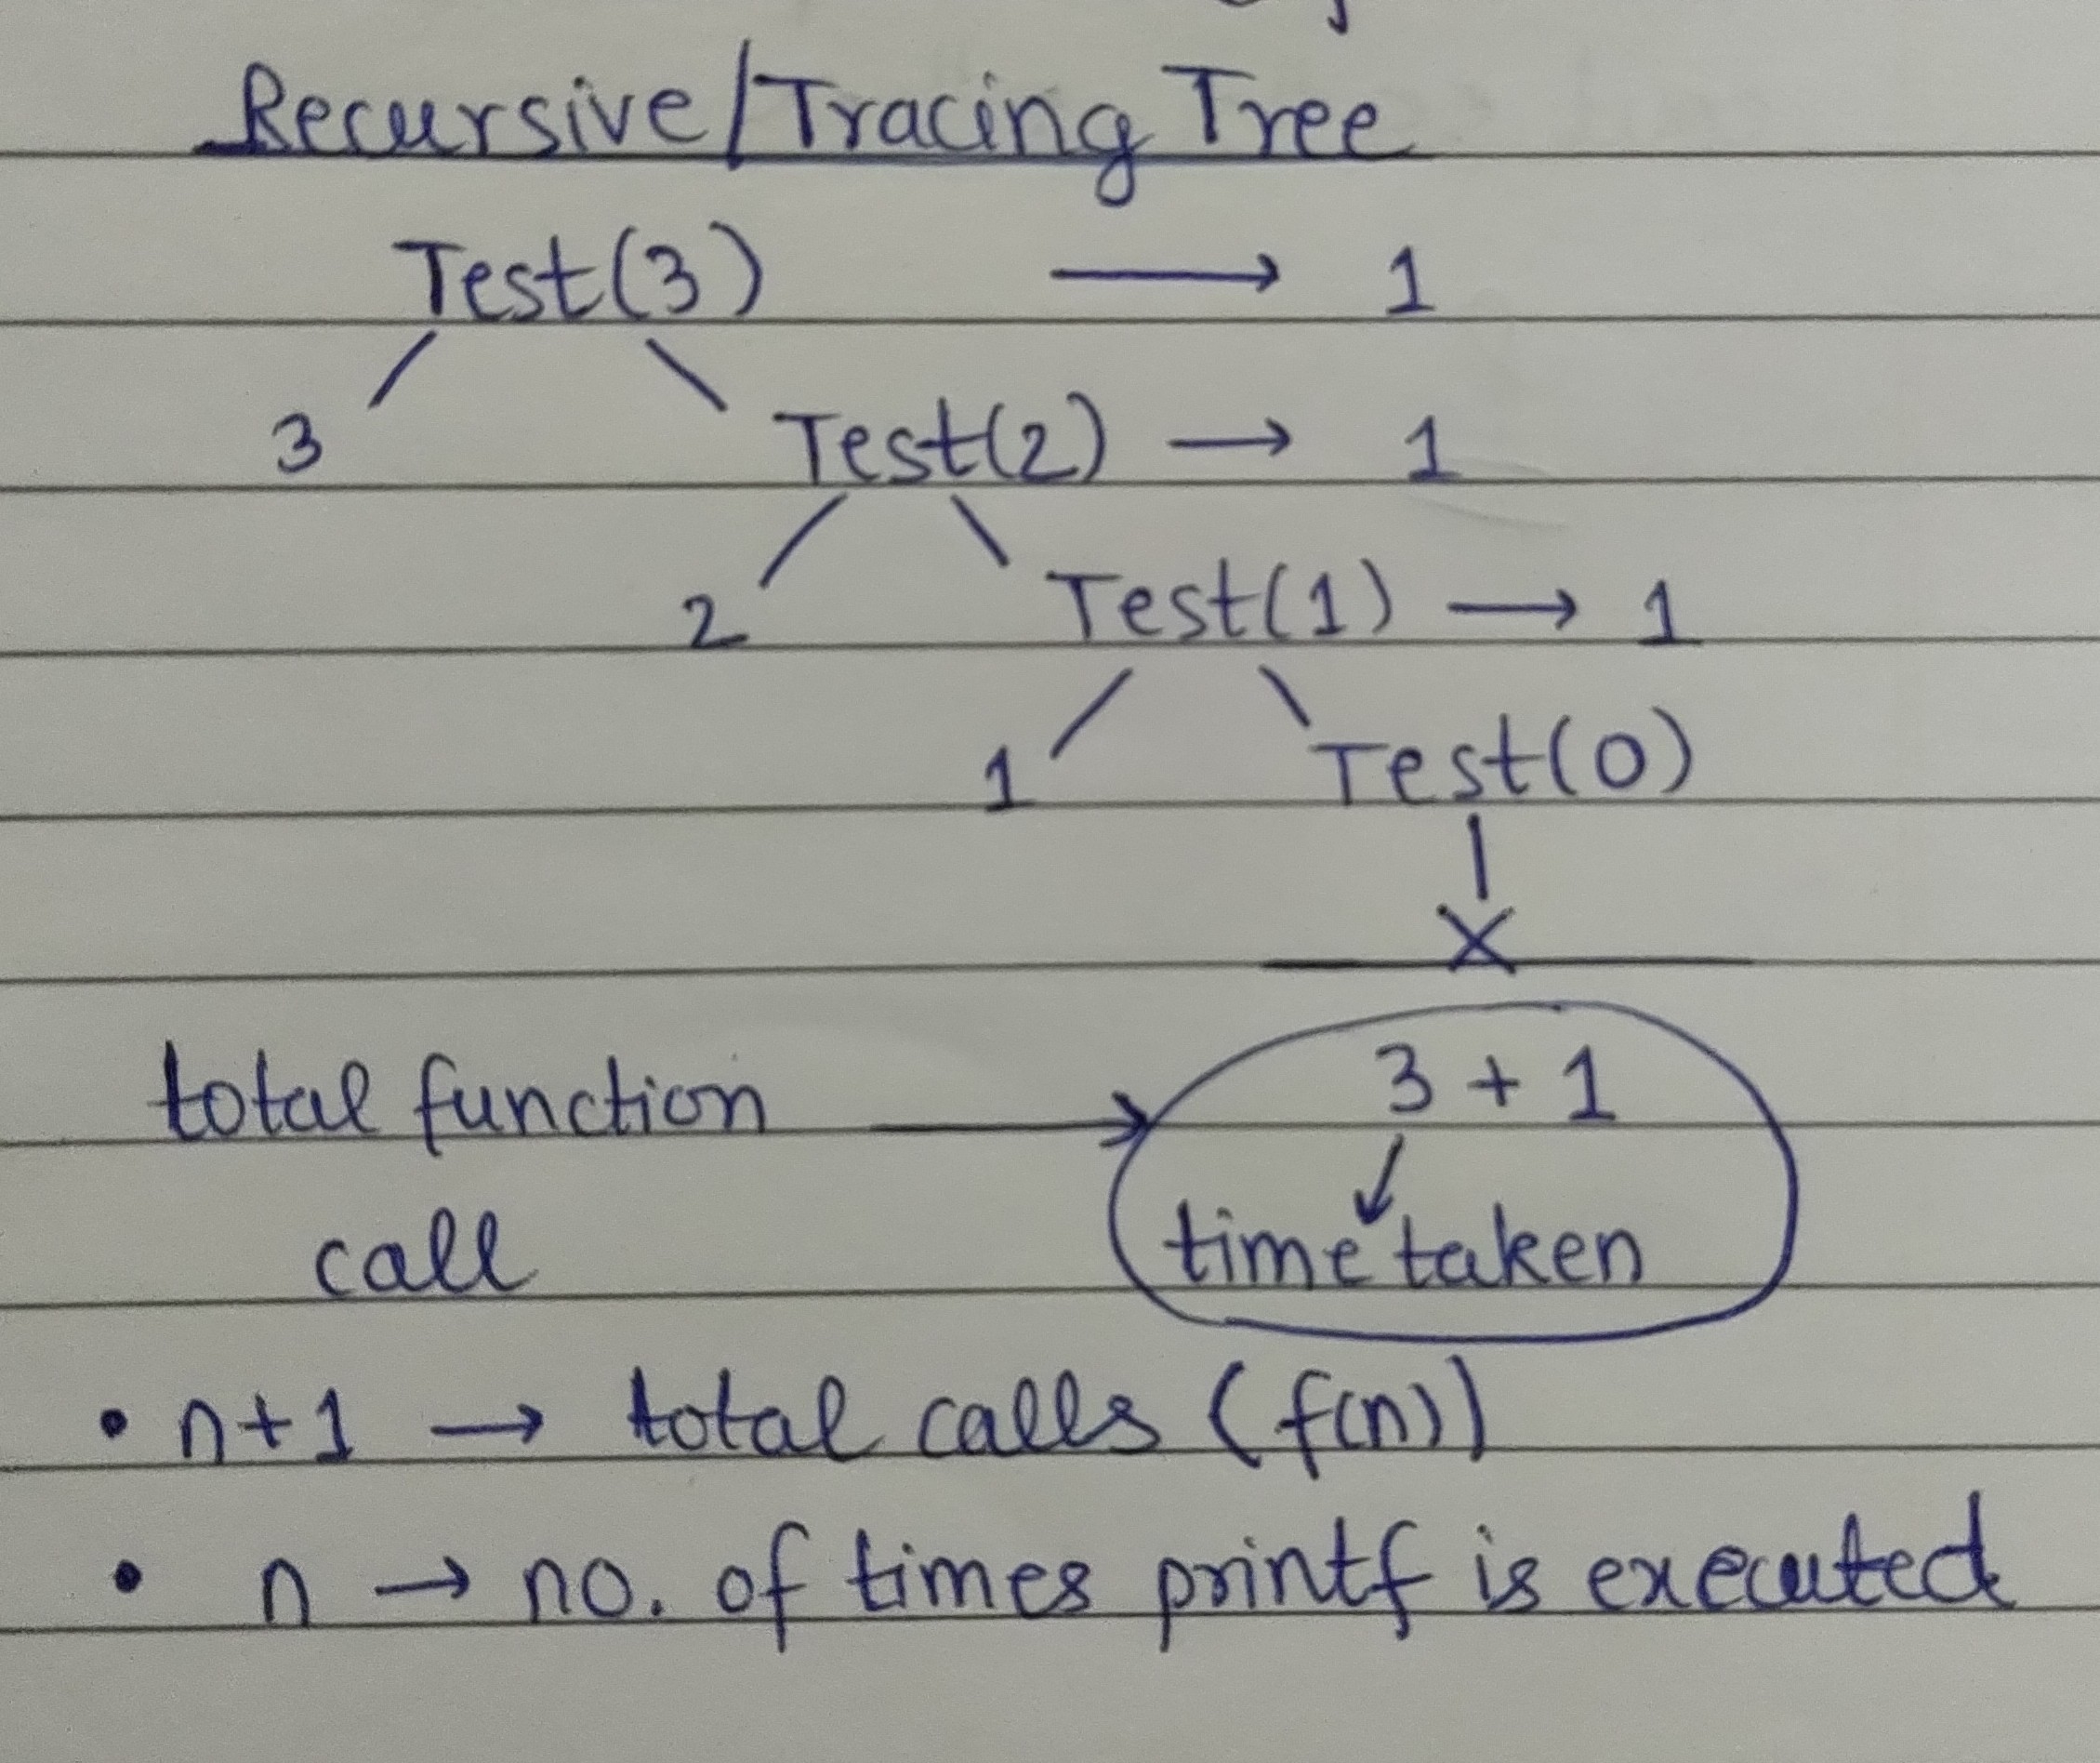 Recursive/Tracing Tree
Test(3) → 1
3 Test(2) → 1
2 Test(1) → 1
1 Test(0)
X
total function → 3 + 1
call time taken
• n+1 → total calls (f(n))
• n → no. of times printf is executed